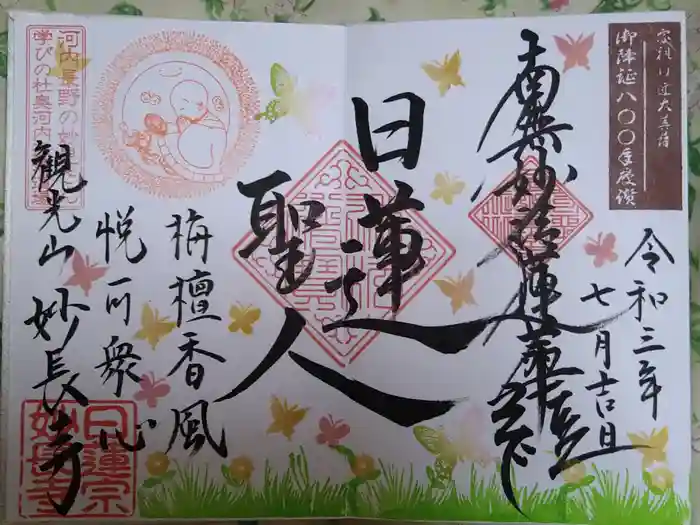 宗祖日蓮大菩薩
御降誕八〇〇年慶讃
令和三年
七月吉日
南無妙法蓮華経
日蓮
聖人
栴檀香風
悦可衆心
観光山 妙長寺
河内長野の妙
学びの杜奥河内
日蓮宗
妙長寺